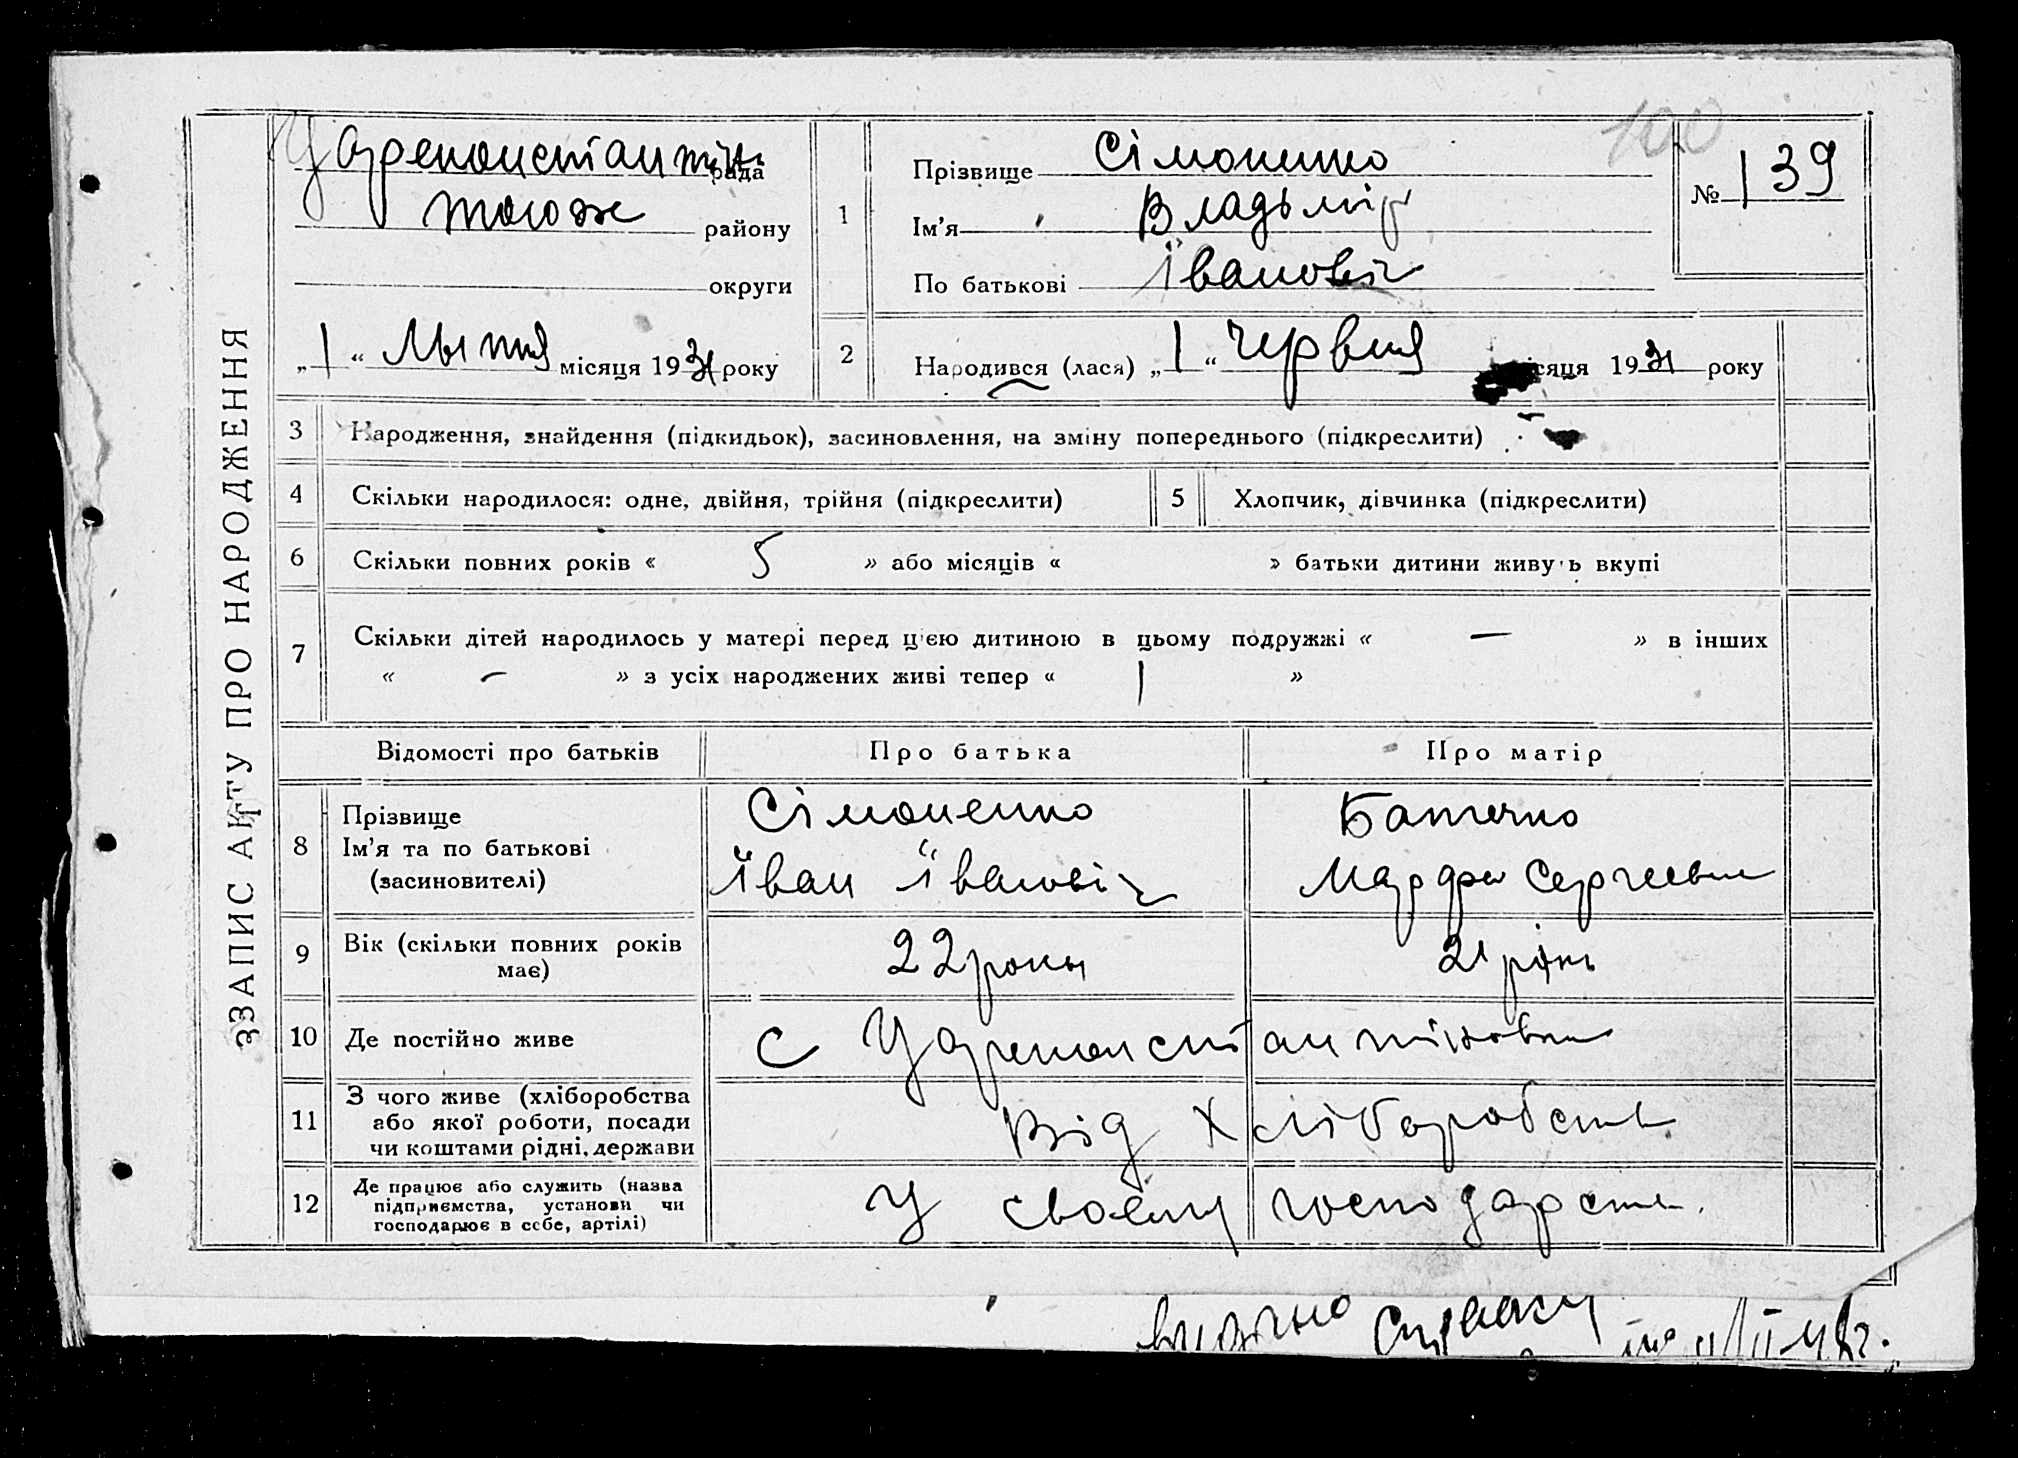 ЗЗАПИС АКТТУ ПРО НАРОДЖЕННЯ
Цареконстантин рада
району
округи
„1“ Лыпня місяця 1931 року
100
№ 139
1
Прізвище Сімоненко
Ім'я Владымір
По батькові Івановіч
2 Народився (лася) „1“ червня місяця 1931 року
3 Народження, знайдення (підкидьок), засиновлення, на зміну попереднього (підкреслити)
4 Скільки народилося: одне, двійня, трійня (підкреслити) 5 Хлопчик, дівчинка (підкреслити)
6 Скільки повних років « 5 » або місяців « » батьки дитини живуть вкупі
7 Скільки дітей народилось у матері перед цією дитиною в цьому подружжі « — » в інших
« — » з усіх народжених живі тепер « 1 »
Відомості про батьків Про батька Про матір
8 Прізвище Сімоненко
Ім'я та по батькові Іван Івановіч Марфа Сергеевна
(засиновителі)
9 Вік (скільки повних років має) 22 рокы 21 рік
10 Де постійно живе с Цареконстантиновка
11 З чого живе (хліборобства або якої роботи, посади чи коштами рідні, держави Від хліборобства
12 Де працює або служить (назва підприємства, установи чи господарює в себе, артілі) У своему господарстві.